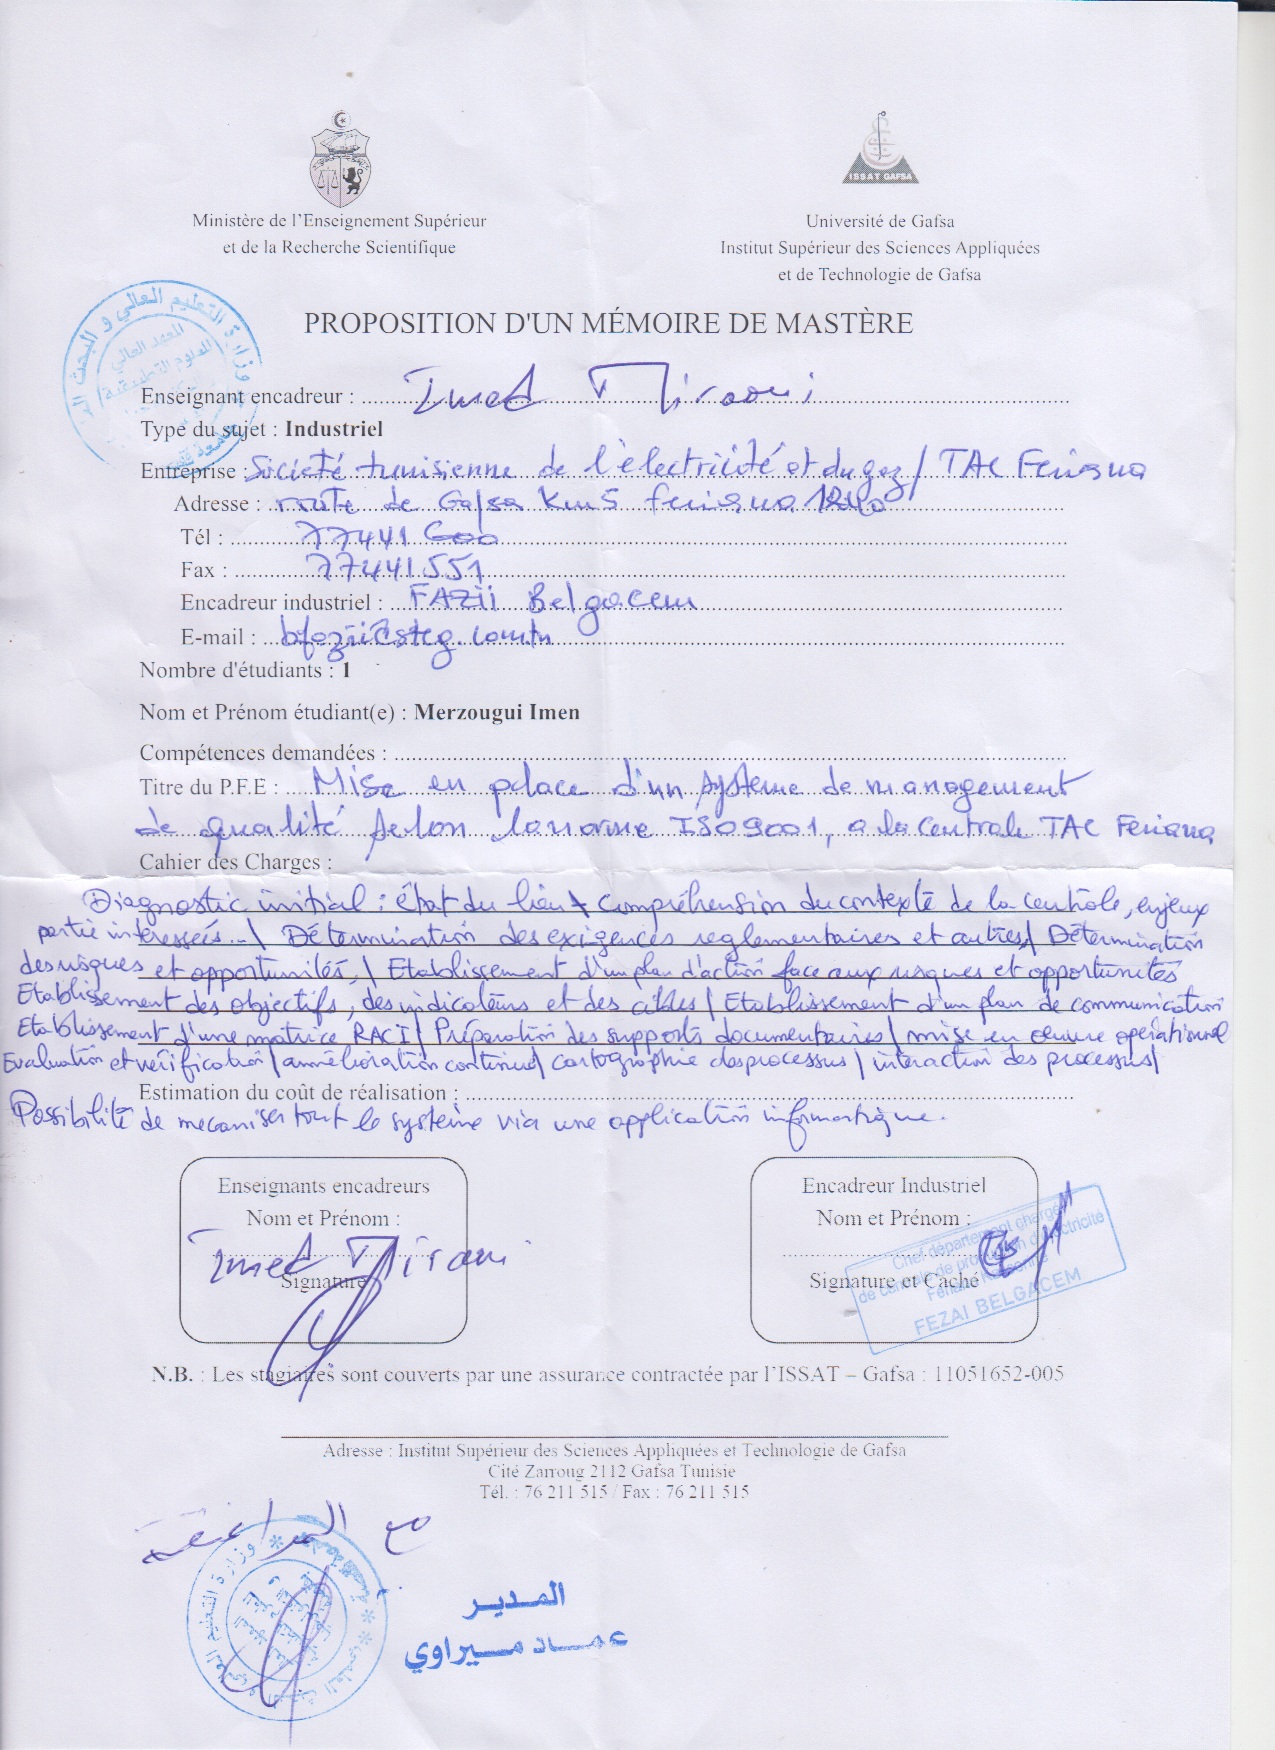 ISSAT GAFSA
Ministère de l’Enseignement Supérieur
et de la Recherche Scientifique
Université de Gafsa
Institut Supérieur des Sciences Appliquées
et de Technologie de Gafsa
وزارة التعليم العالي و البحث
المعهد العالي
للعلوم التطبيقية
PROPOSITION D'UN MÉMOIRE DE MASTÈRE
Enseignant encadreur : Imed Miraoui
Type du sujet : Industriel
Entreprise : Société tunisienne de l'électricité et du gaz / TAC Feriana
Adresse : route de Gafsa Km5 feriana 1240
Tél : 77441 600
Fax : 77441 551
Encadreur industriel : Belgacem
E-mail :
Nombre d'étudiants : 1
Nom et Prénom étudiant(e) : Merzougui Imen
Compétences demandées :
Titre du P.F.E : Mise en place d'un système de management
de qualité selon la norme ISO 9001, a la centrale TAC Feriana
Cahier des Charges :
Diagnostic initial : état du lieu / compréhension du contexte de la centrale, enjeux
partie intéressés... / Détermination des exigences reglementaires et autres / Détermination
des risques et opportunités, / Etablissement d'un plan d'action face aux risques et opportunités
Etablissement des objectifs, des indicateurs et des cibles / Etablissement d'un plan de communication
Etablissement d'une matrice RACI / Préparation des supports documentaires / mise en œuvre opérationnel
Evaluation et vérification / amélioration continue / cartographie des processus / interaction des processus /
Estimation du coût de réalisation :
Possibilité de mecaniser tout le système via une application informatique.
Enseignants encadreurs
Nom et Prénom :
Imed Miraoui
Signature
Encadreur Industriel
Nom et Prénom :
Signature et Caché
Chef département chargé
de centrale de production d'électricité
FEZAI BELGACEM
N.B. : Les stagiaires sont couverts par une assurance contractée par l’ISSAT – Gafsa : 11051652-005
Adresse : Institut Supérieur des Sciences Appliquées et Technologie de Gafsa
Cité Zarroug 2112 Gafsa Tunisie
Tél. : 76 211 515 / Fax : 76 211 515
مع الموافقة
وزارة التعليم العالي
المدير
عماد ميراوي